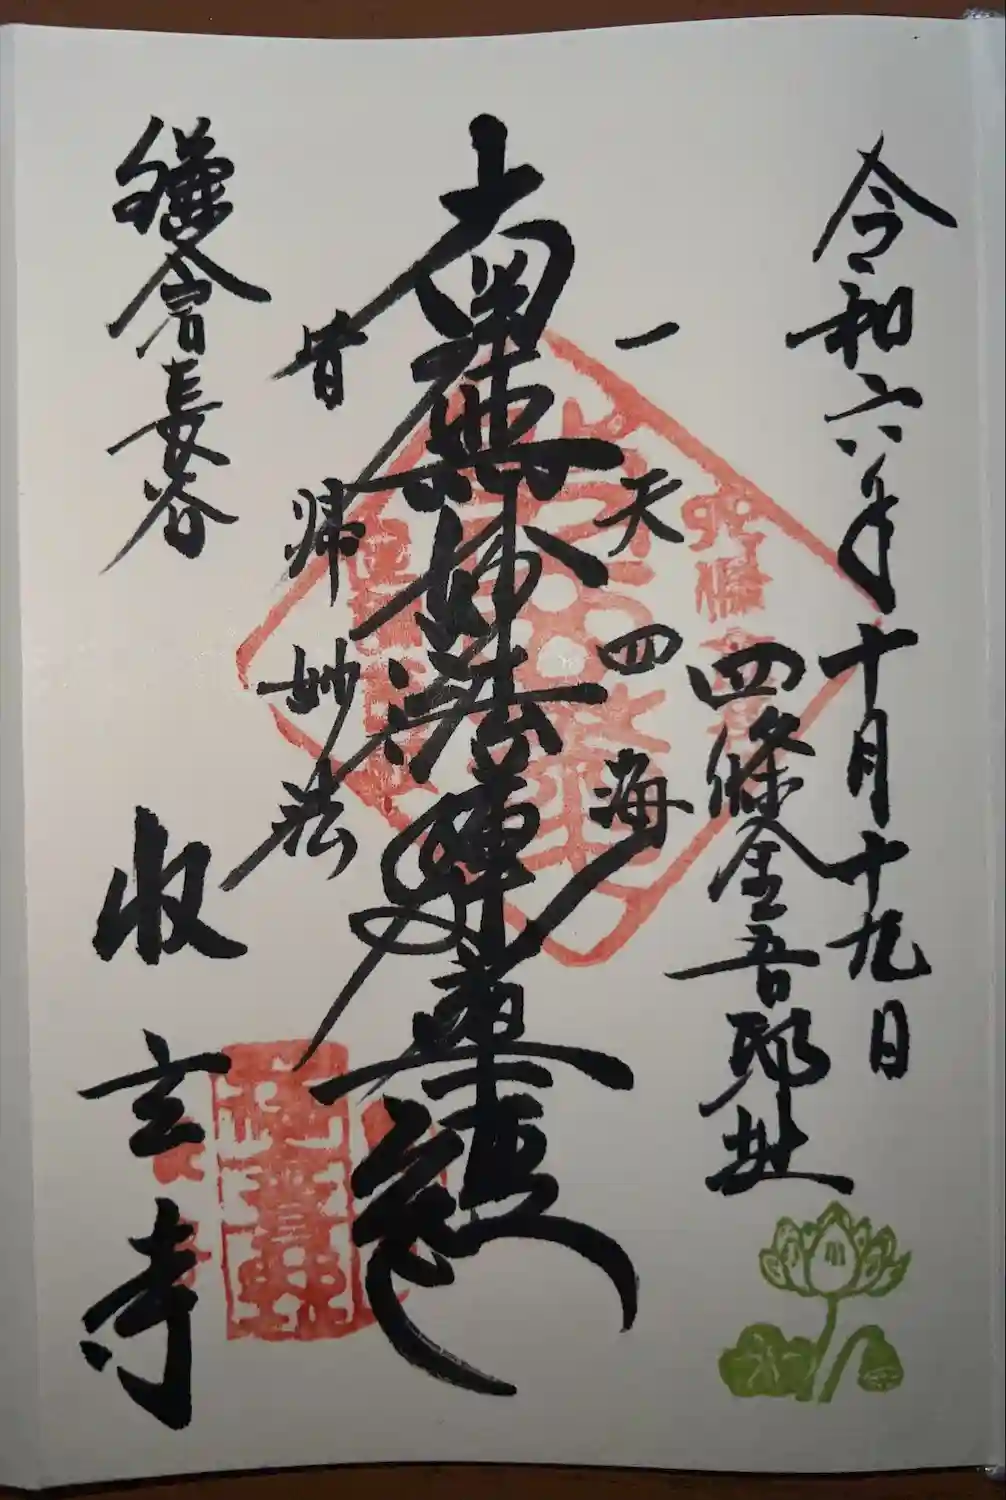 令和六年十月十九日
四條金吾邸址
一天四海
南無妙法蓮華経
皆帰妙法
鎌倉長谷
收玄寺